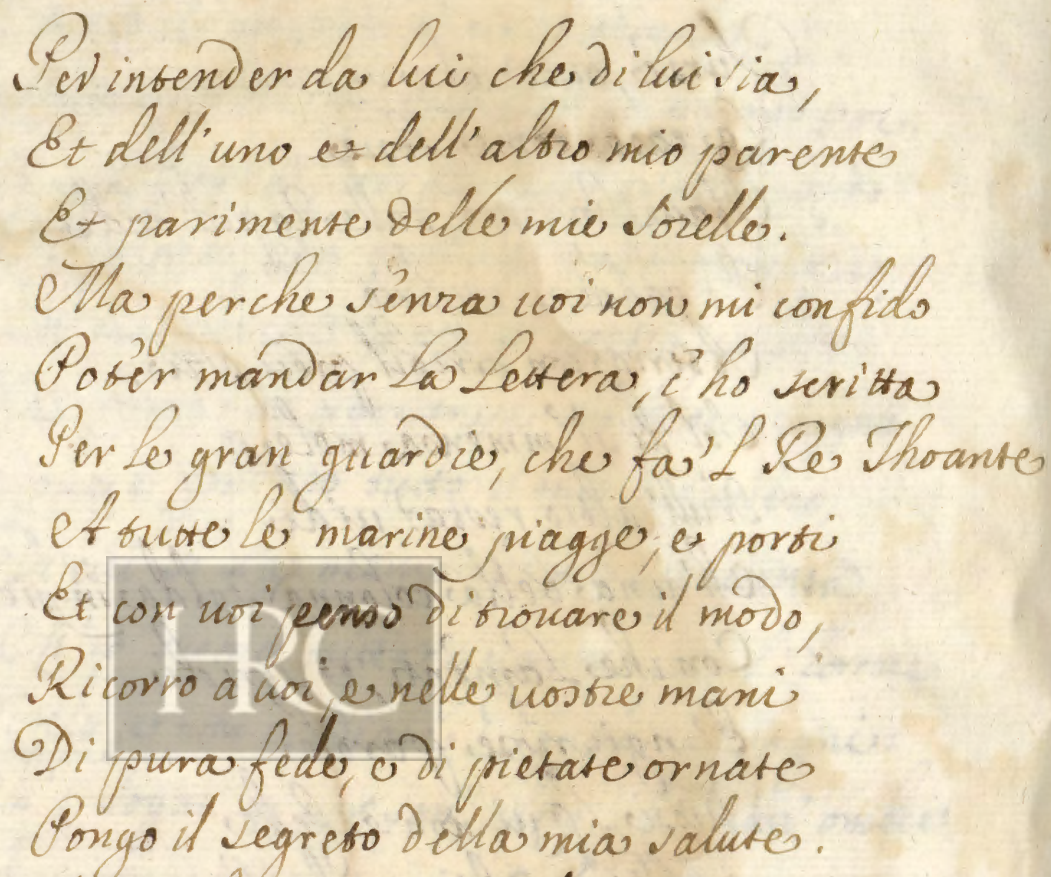 Per intender da lui che di lui sia,
Et dell'uno et dell'altro mio parente
Et parimente delle mie Sorelle.
Ma perche senza uoi non mi confido
Poter mandar la Lettera, c'ho scritta
Per le gran guardie, che fa'l Re Thoante
A tutte le marine piagge, e porti
Et con uoi penso di trouare il modo,
Ricorro a uoi, e nelle uostre mani
Di pura fede, e di pietate ornate
Pongo il segreto della mia salute.
HRC